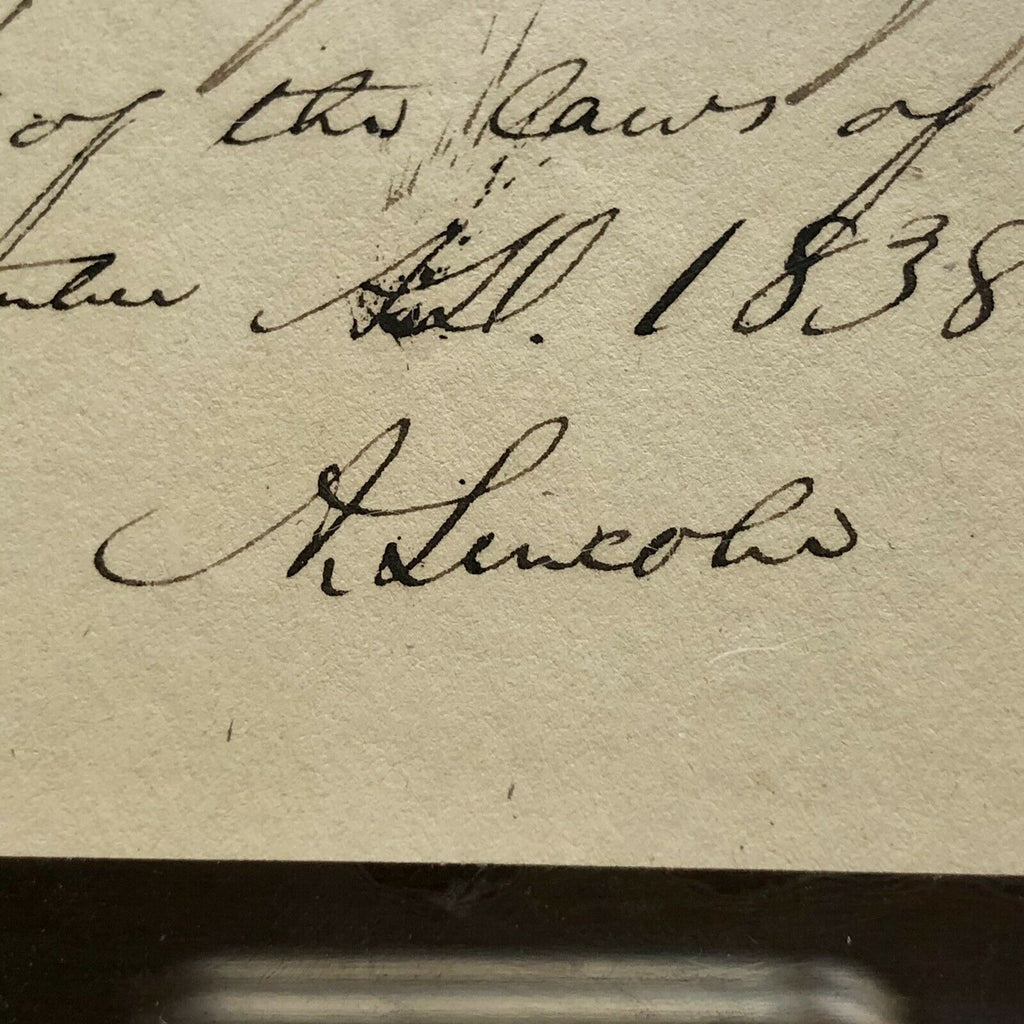 of the Laws of
A.D. 1838
A Lincoln